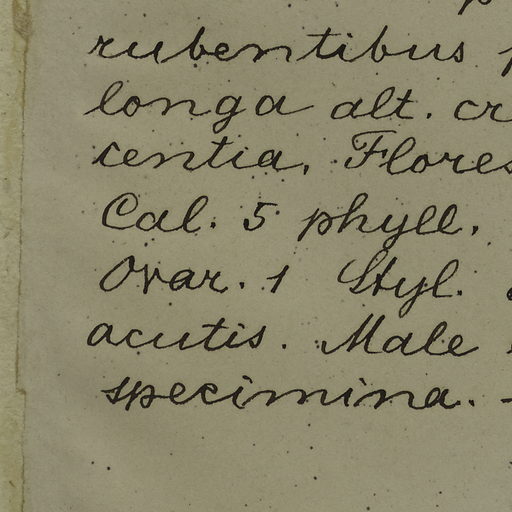 rubentibus
longa alt. cr
centia, Flores
Cal. 5 phyll.
Ovar. 1 Styl.
acutis. Male
specimina. -